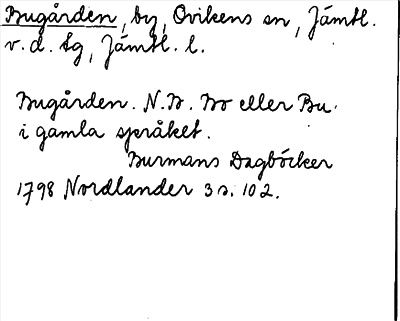 Bugården, by, Ovikens sn, Jämtl.
v.d. tg, Jämtl. l.
Bugården. N.B. Bo eller Bu.
i gamla språket.
Burmans Dagböcker
1798 Nordlander 3 s. 102.